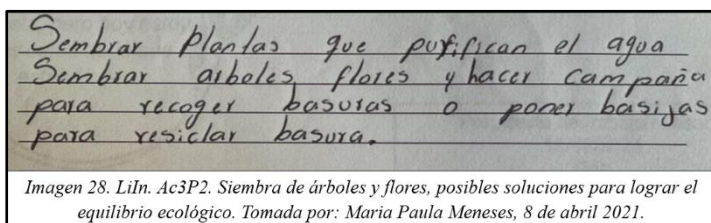 Sembrar plantas que purifican el agua
Sembrar arboles, flores y hacer campaña
para recoger basuras o poner basijas
para resiclar basura.
Imagen 28. LiIn. Ac3P2. Siembra de árboles y flores, posibles soluciones para lograr el
equilibrio ecológico. Tomada por: Maria Paula Meneses, 8 de abril 2021.